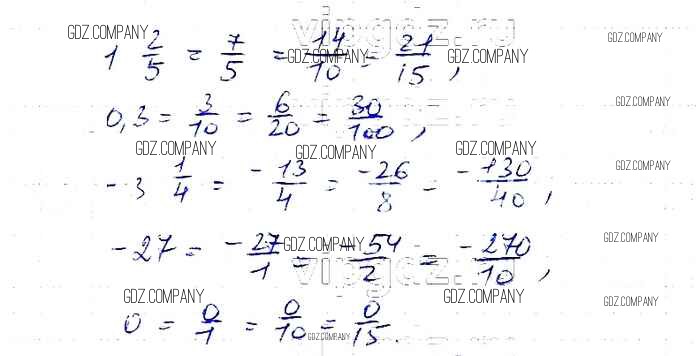 vipgdz.ru
GDZ.COMPANY GDZ.COMPANY
1 2/5 = 7/5 = 14/10 = 21/15,
GDZ.COMPANY GDZ.COMPANY
vipgdz.ru
0,3 = 3/10 = 6/20 = 30/100,
GDZ.COMPANY
GDZ.COMPANY GDZ.COMPANY GDZ.COMPANY
-3 1/4 = -13/4 = -26/8 = -130/40,
GDZ.COMPANY
-27 = -27/1 = -54/2 = -270/10,
GDZ.COMPANY GDZ.COMPANY
vipgdz.ru
GDZ.COMPANY GDZ.COMPANY GDZ.COMPANY
0 = 0/1 = 0/10 = 0/15.
GDZ.COMPANY
vipgdz.ru